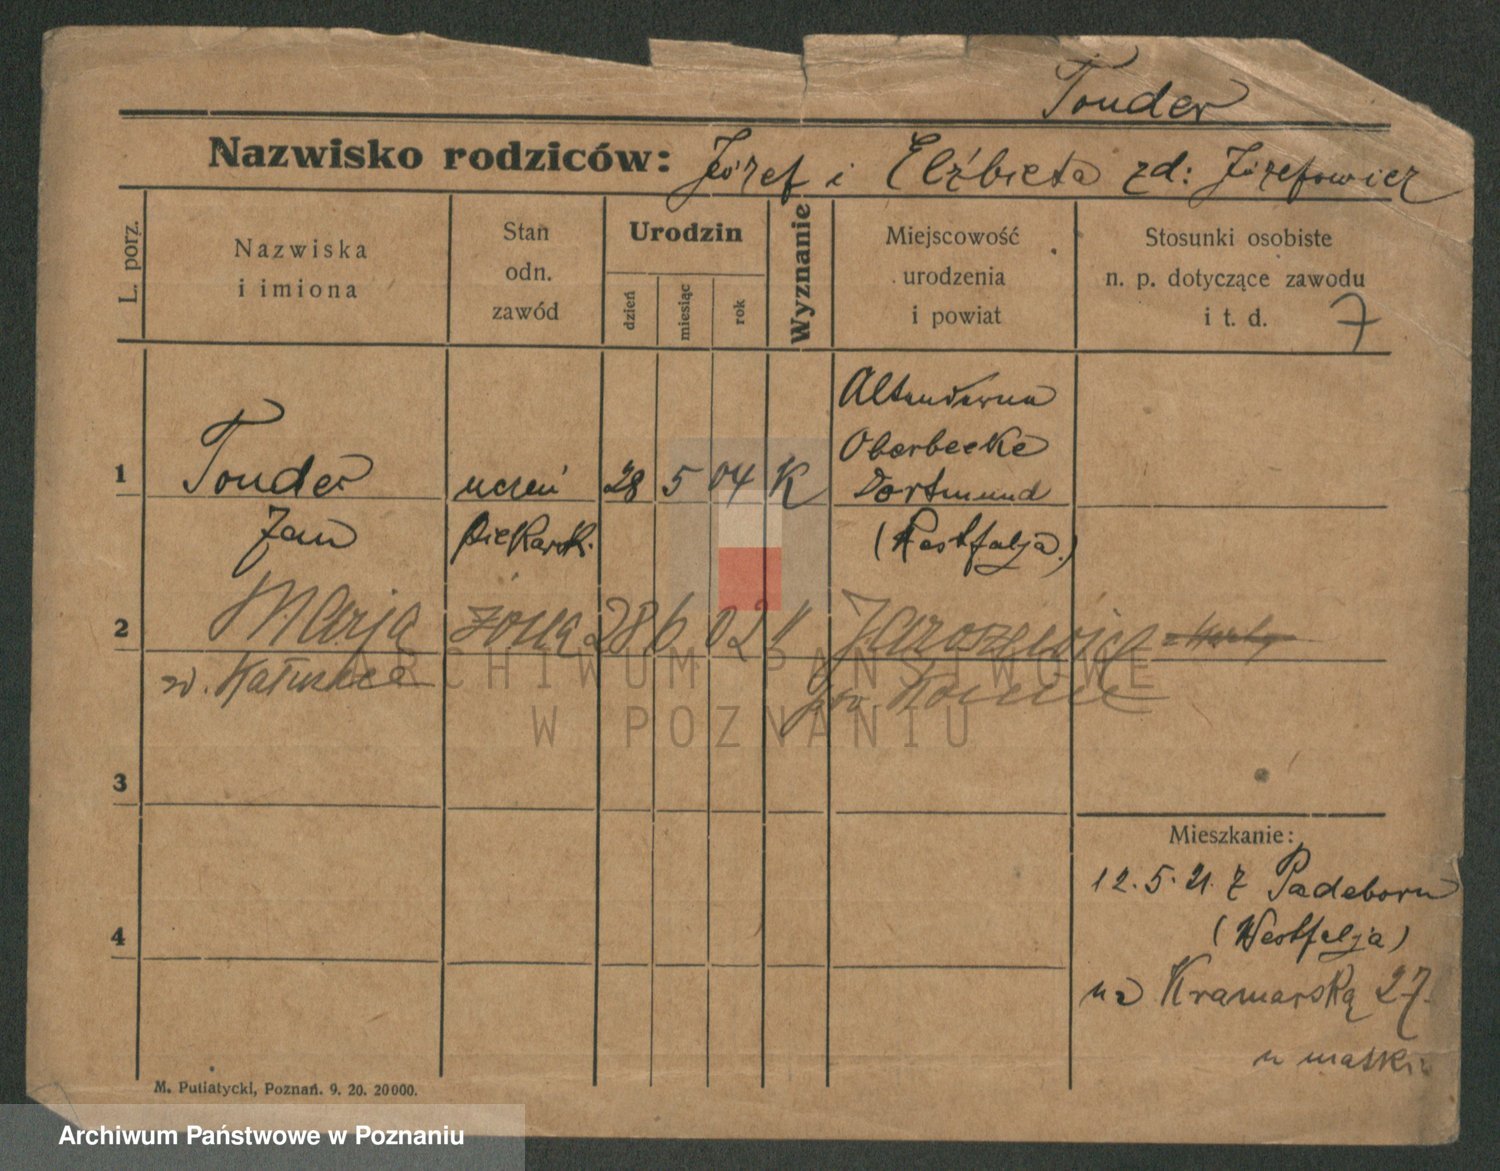 Tonder
Nazwisko rodziców: Józef i Elżbieta zd: Józefowicz
L. porz.
Nazwiska
i imiona
Stan
odn.
zawód
Urodzin
dzień
miesiąc
rok
Wyznanie
Miejscowość
urodzenia
i powiat
Stosunki osobiste
n. p. dotyczące zawodu
i t. d.
7
1
Tonder
Jan
uczeń
piekarsk.
28 5 04 K
Oberbecke
Dortmund
(Westfalja.)
2
Marja
żona 28 6 02 "
3
4
Mieszkanie:
12. 5. 21. z Padeborn
(Westfalja)
na Kramarską 27.
u matki
M. Putiatycki, Poznań. 9. 20. 20000.
ARCHIWUM PAŃSTWOWE
W POZNANIU
Archiwum Państwowe w Poznaniu